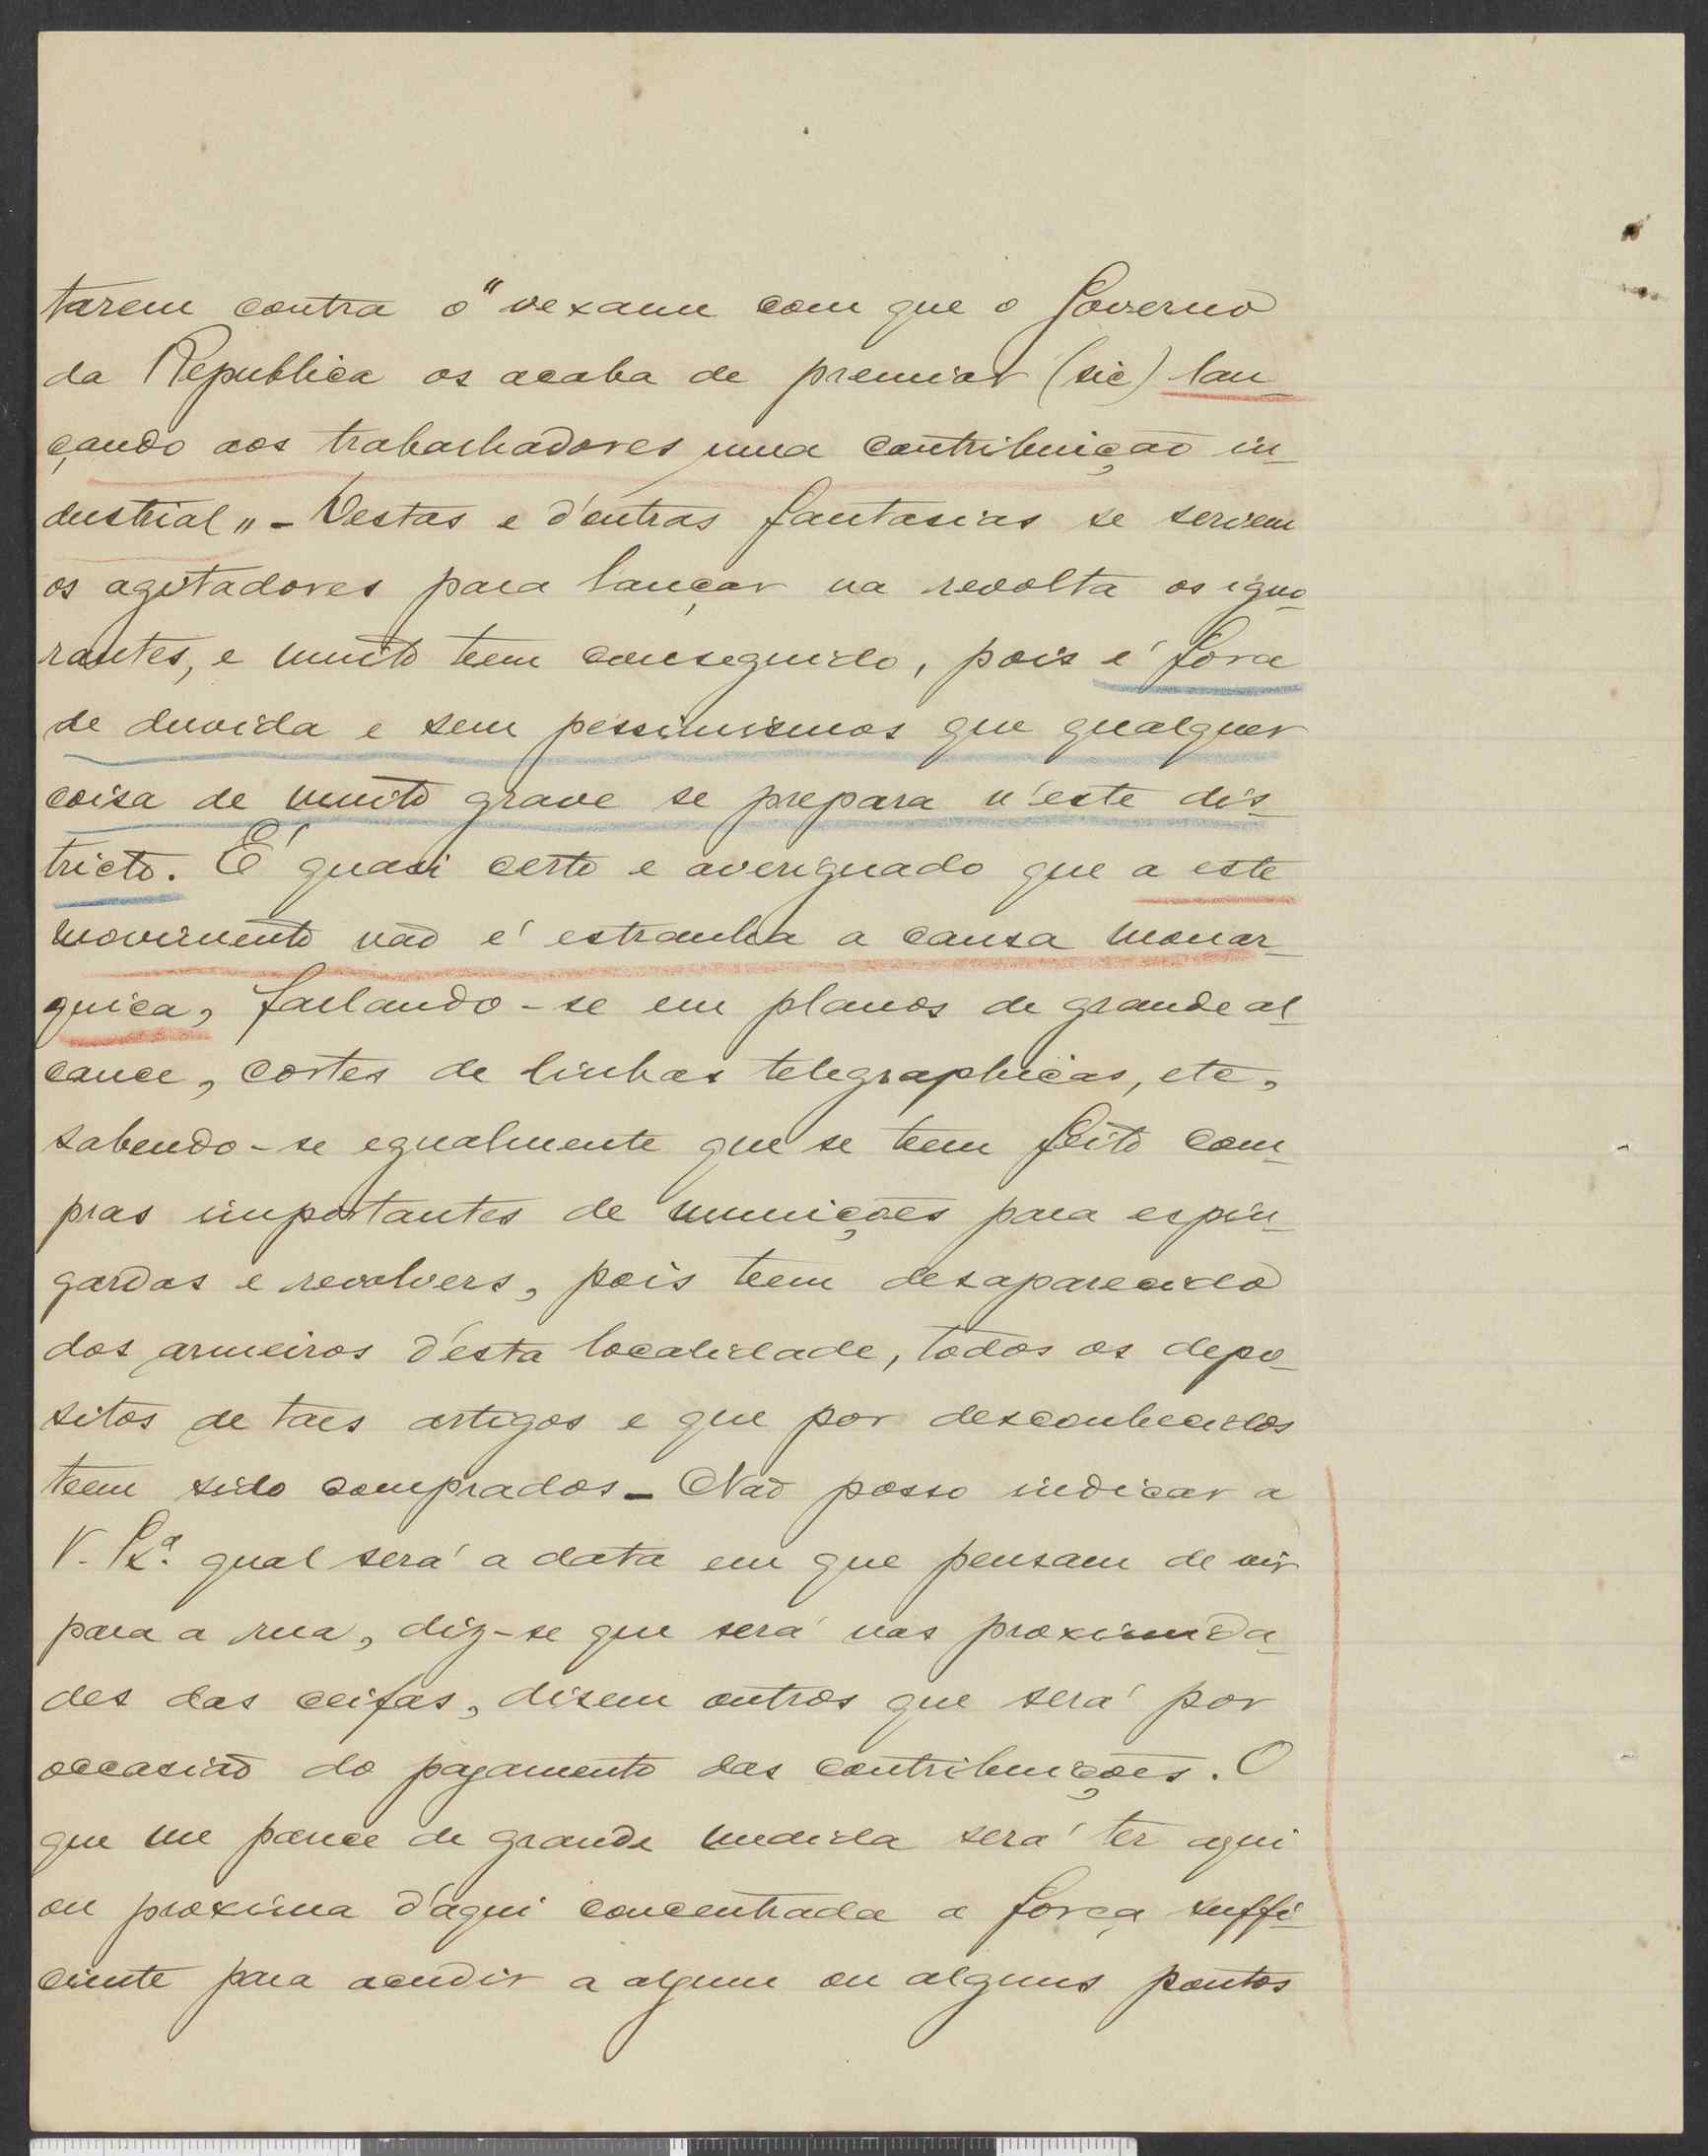 tarem contra o "vexame com que o Governo
da Republica os acaba de premiar (sic) lan-
çando aos trabalhadores uma contribuição in-
dustrial" - Destas e d'outras fantasias se servem
os agitadores para lançar na revolta os igno-
rantes, e muito teem conseguido, pois é fora
de duvida e sem pessimismos que qualquer
coisa de muito grave se prepara n'este dis-
tricto. É quasi certo e averiguado que a este
movimento não é estranha a causa monar-
quica, fallando-se em planos de grande al-
cance, cortes de linhas telegraphicas, etc,
sabendo-se egualmente que se tem feito com-
pras importantes de munições para espin-
gardas e revolvers, pois teem desaparecido
dos armeiros d'esta localidade, todos os depo-
sitos de taes artigos e que por desconhecidos
teem sido comprados - Não posso indicar a
V. Exª. qual será a data em que pensam de vir
para a rua, diz-se que será nas proximida-
des das ceifas, disem outros que será por
occasião do pagamento das contribuições. O
que me parece de grande medida será ter aqui
ou proxima d'aqui concentrada a força suffi-
ciente para acudir a algum ou alguns pontos